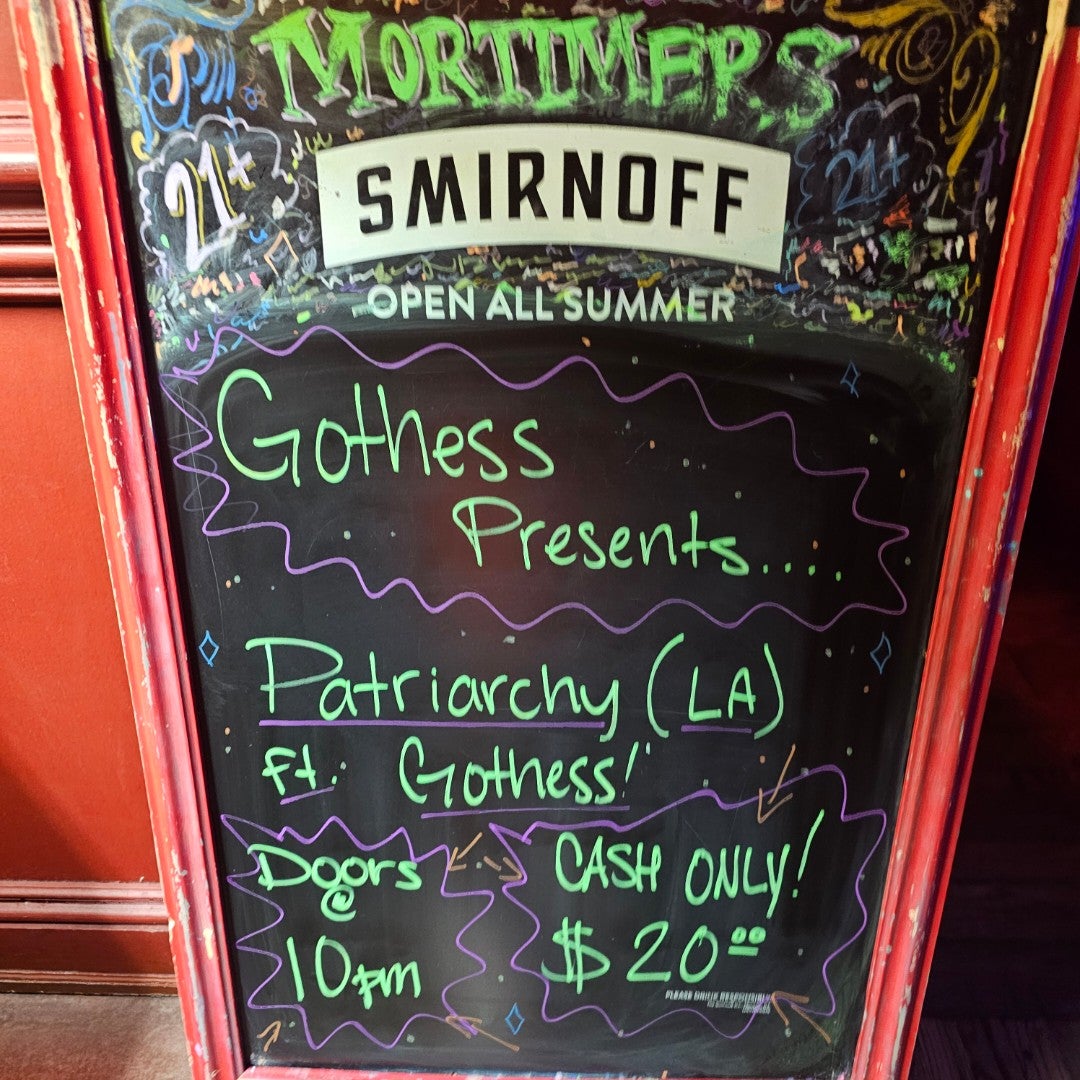 MORTIMERS
21+
SMIRNOFF
21+
OPEN ALL SUMMER
Gothess
Presents....
Patriarchy (LA)
ft. Gothess!
Doors
@
10pm
CASH ONLY!
$20.00